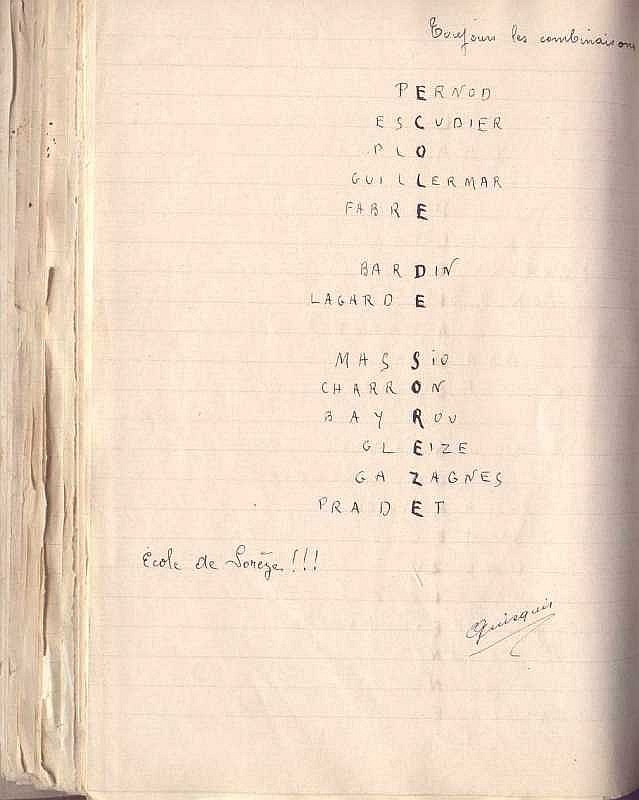 Toujours les combinaisons
PERNOD
ESCUDIER
PLO
GUILLERMAR
FABRE
BARDIN
LAGARDE
MASSIO
CHARRON
BAYROU
GLEIZE
GAZAGNES
PRADET
École de Sorèze!!!
Quisquis